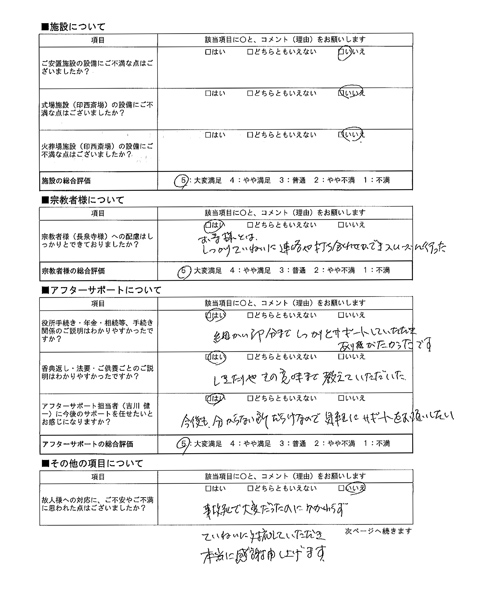 ■施設について
項目 該当項目に○と、コメント（理由）をお願いします
ご安置施設の設備にご不満な点はございましたか？ □はい □どちらともいえない □いいえ
式場施設（印西斎場）の設備にご不満な点はございましたか？ □はい □どちらともいえない □いいえ
火葬場施設（印西斎場）の設備にご不満な点はございましたか？ □はい □どちらともいえない □いいえ
施設の総合評価 5：大変満足 4：やや満足 3：普通 2：やや不満 1：不満
■宗教者様について
項目 該当項目に○と、コメント（理由）をお願いします
宗教者様（長泉寺様）への配慮はしっかりとできておりましたか？ □はい □どちらともいえない □いいえ
お寺様とは、
しっかりていねいに連絡や打ち合わせができスムーズにいった
宗教者様の総合評価 5：大変満足 4：やや満足 3：普通 2：やや不満 1：不満
■アフターサポートについて
項目 該当項目に○と、コメント（理由）をお願いします
役所手続き・年金・相続等、手続き関係のご説明はわかりやすかったですか？ □はい □どちらともいえない □いいえ
細かい部分までしっかりとサポートしていただき
有り難がたかったです
香典返し・法要・ご供養ごとのご説明はわかりやすかったですか？ □はい □どちらともいえない □いいえ
しきたりやその意味まで教えていただいた
アフターサポート担当者（吉川 健一）に今後のサポートを任せたいとお感じになりますか？ □はい □どちらともいえない □いいえ
今後も分からない所だらけなので気軽にサポートをお願いしたい
アフターサポートの総合評価 5：大変満足 4：やや満足 3：普通 2：やや不満 1：不満
■その他の項目について
項目 該当項目に○と、コメント（理由）をお願いします
故人様への対応に、ご不安やご不満に思われた点はございましたか？ □はい □どちらともいえない □いいえ
事故死で大変だったのにかかわらず
次ページへ続きます
ていねいに対応していただき
本当に感謝申し上げます